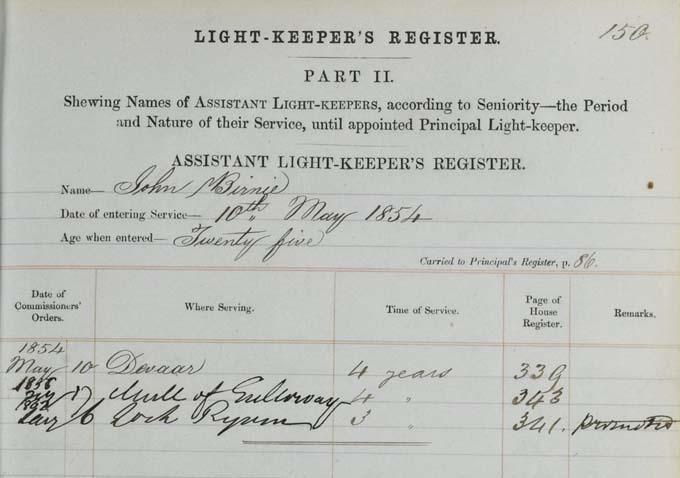 150.
LIGHT-KEEPER'S REGISTER.
PART II.
Shewing Names of ASSISTANT LIGHT-KEEPERS, according to Seniority—the Period
and Nature of their Service, until appointed Principal Light-keeper.
ASSISTANT LIGHT-KEEPER'S REGISTER.
Name— John Birnie
Date of entering Service— 10th May 1854
Age when entered— Twenty five
Carried to Principal's Register, p. 86.
Date of Commissioners' Orders. Where Serving. Time of Service. Page of House Register. Remarks.
1854
May 10 Davaar 4 years 339
17 Mull of Galloway 4 " 343
6 Loch Ryan 3 " 341. promoted